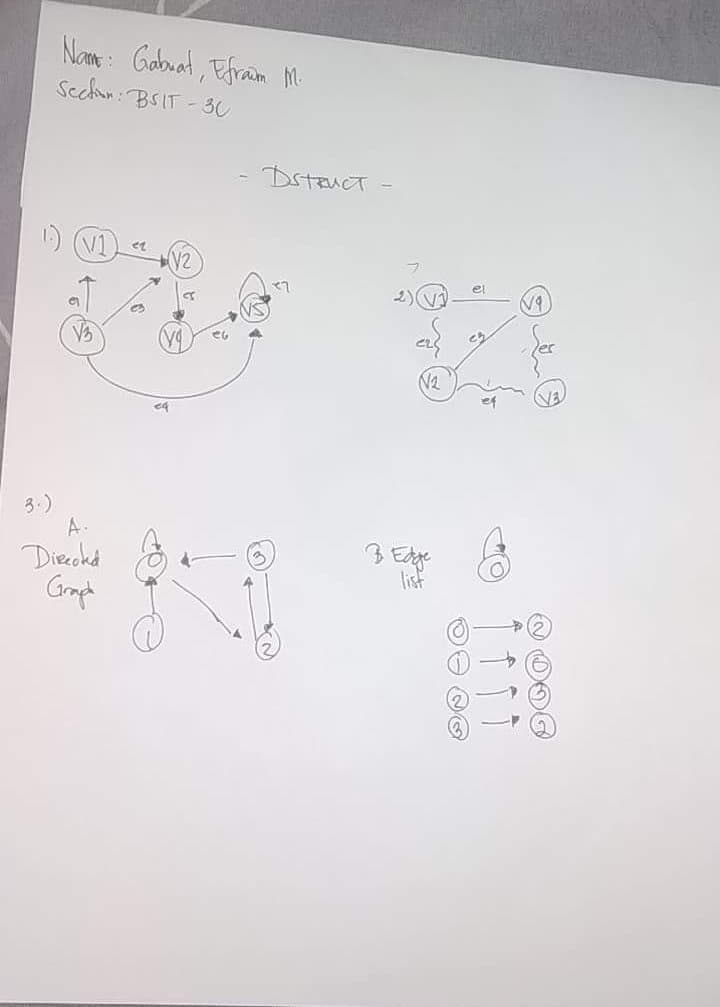 Name: Gabuat, Efraim M.
Section: BSIT - 3C
- DSTRUCT -
1.) V1 e2 V2
e1 e3 e5 V5 e7
V3 V4 e6
e4
2.) V1 e1 V4
e2 e3 e5
V2 e4 V3
3.)
A.
Directed
Graph
0 3
1 2
B Edge
list
0
0 2
1 0
2 3
3 2